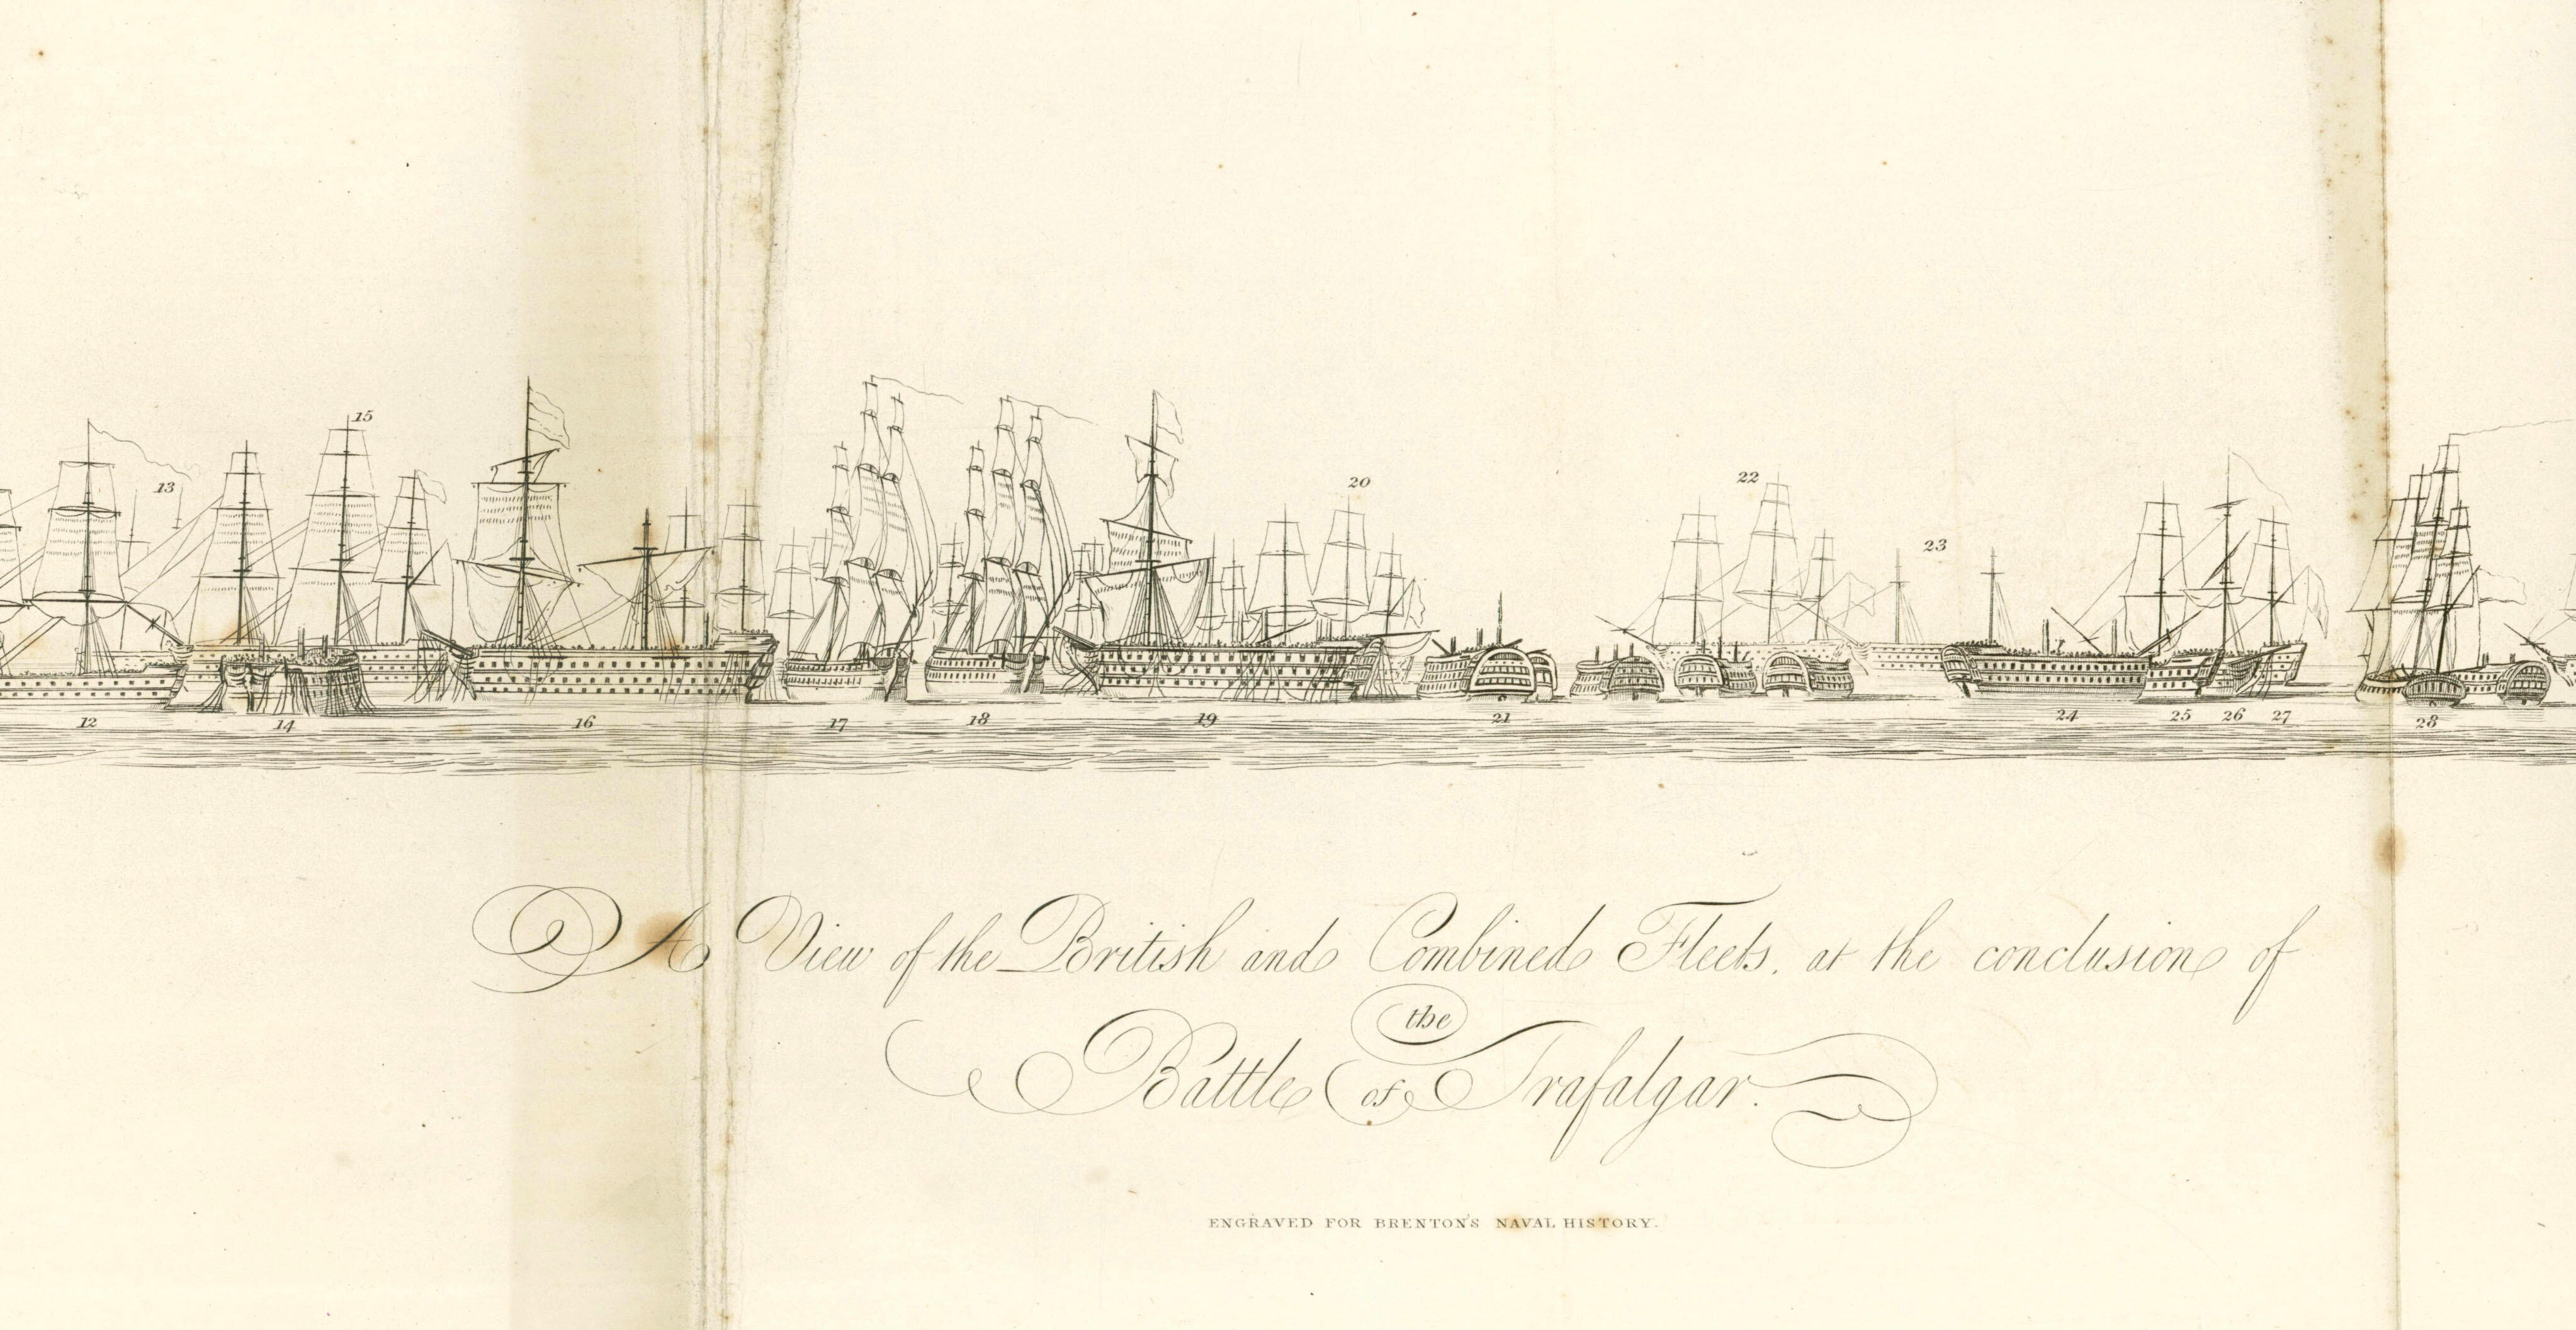 15
13
20
22
23
12 14 16 17 18 19 21 24 25 26 27 28
A View of the British and Combined Fleets, at the conclusion of
the
Battle of Trafalgar.
ENGRAVED FOR BRENTON'S NAVAL HISTORY.